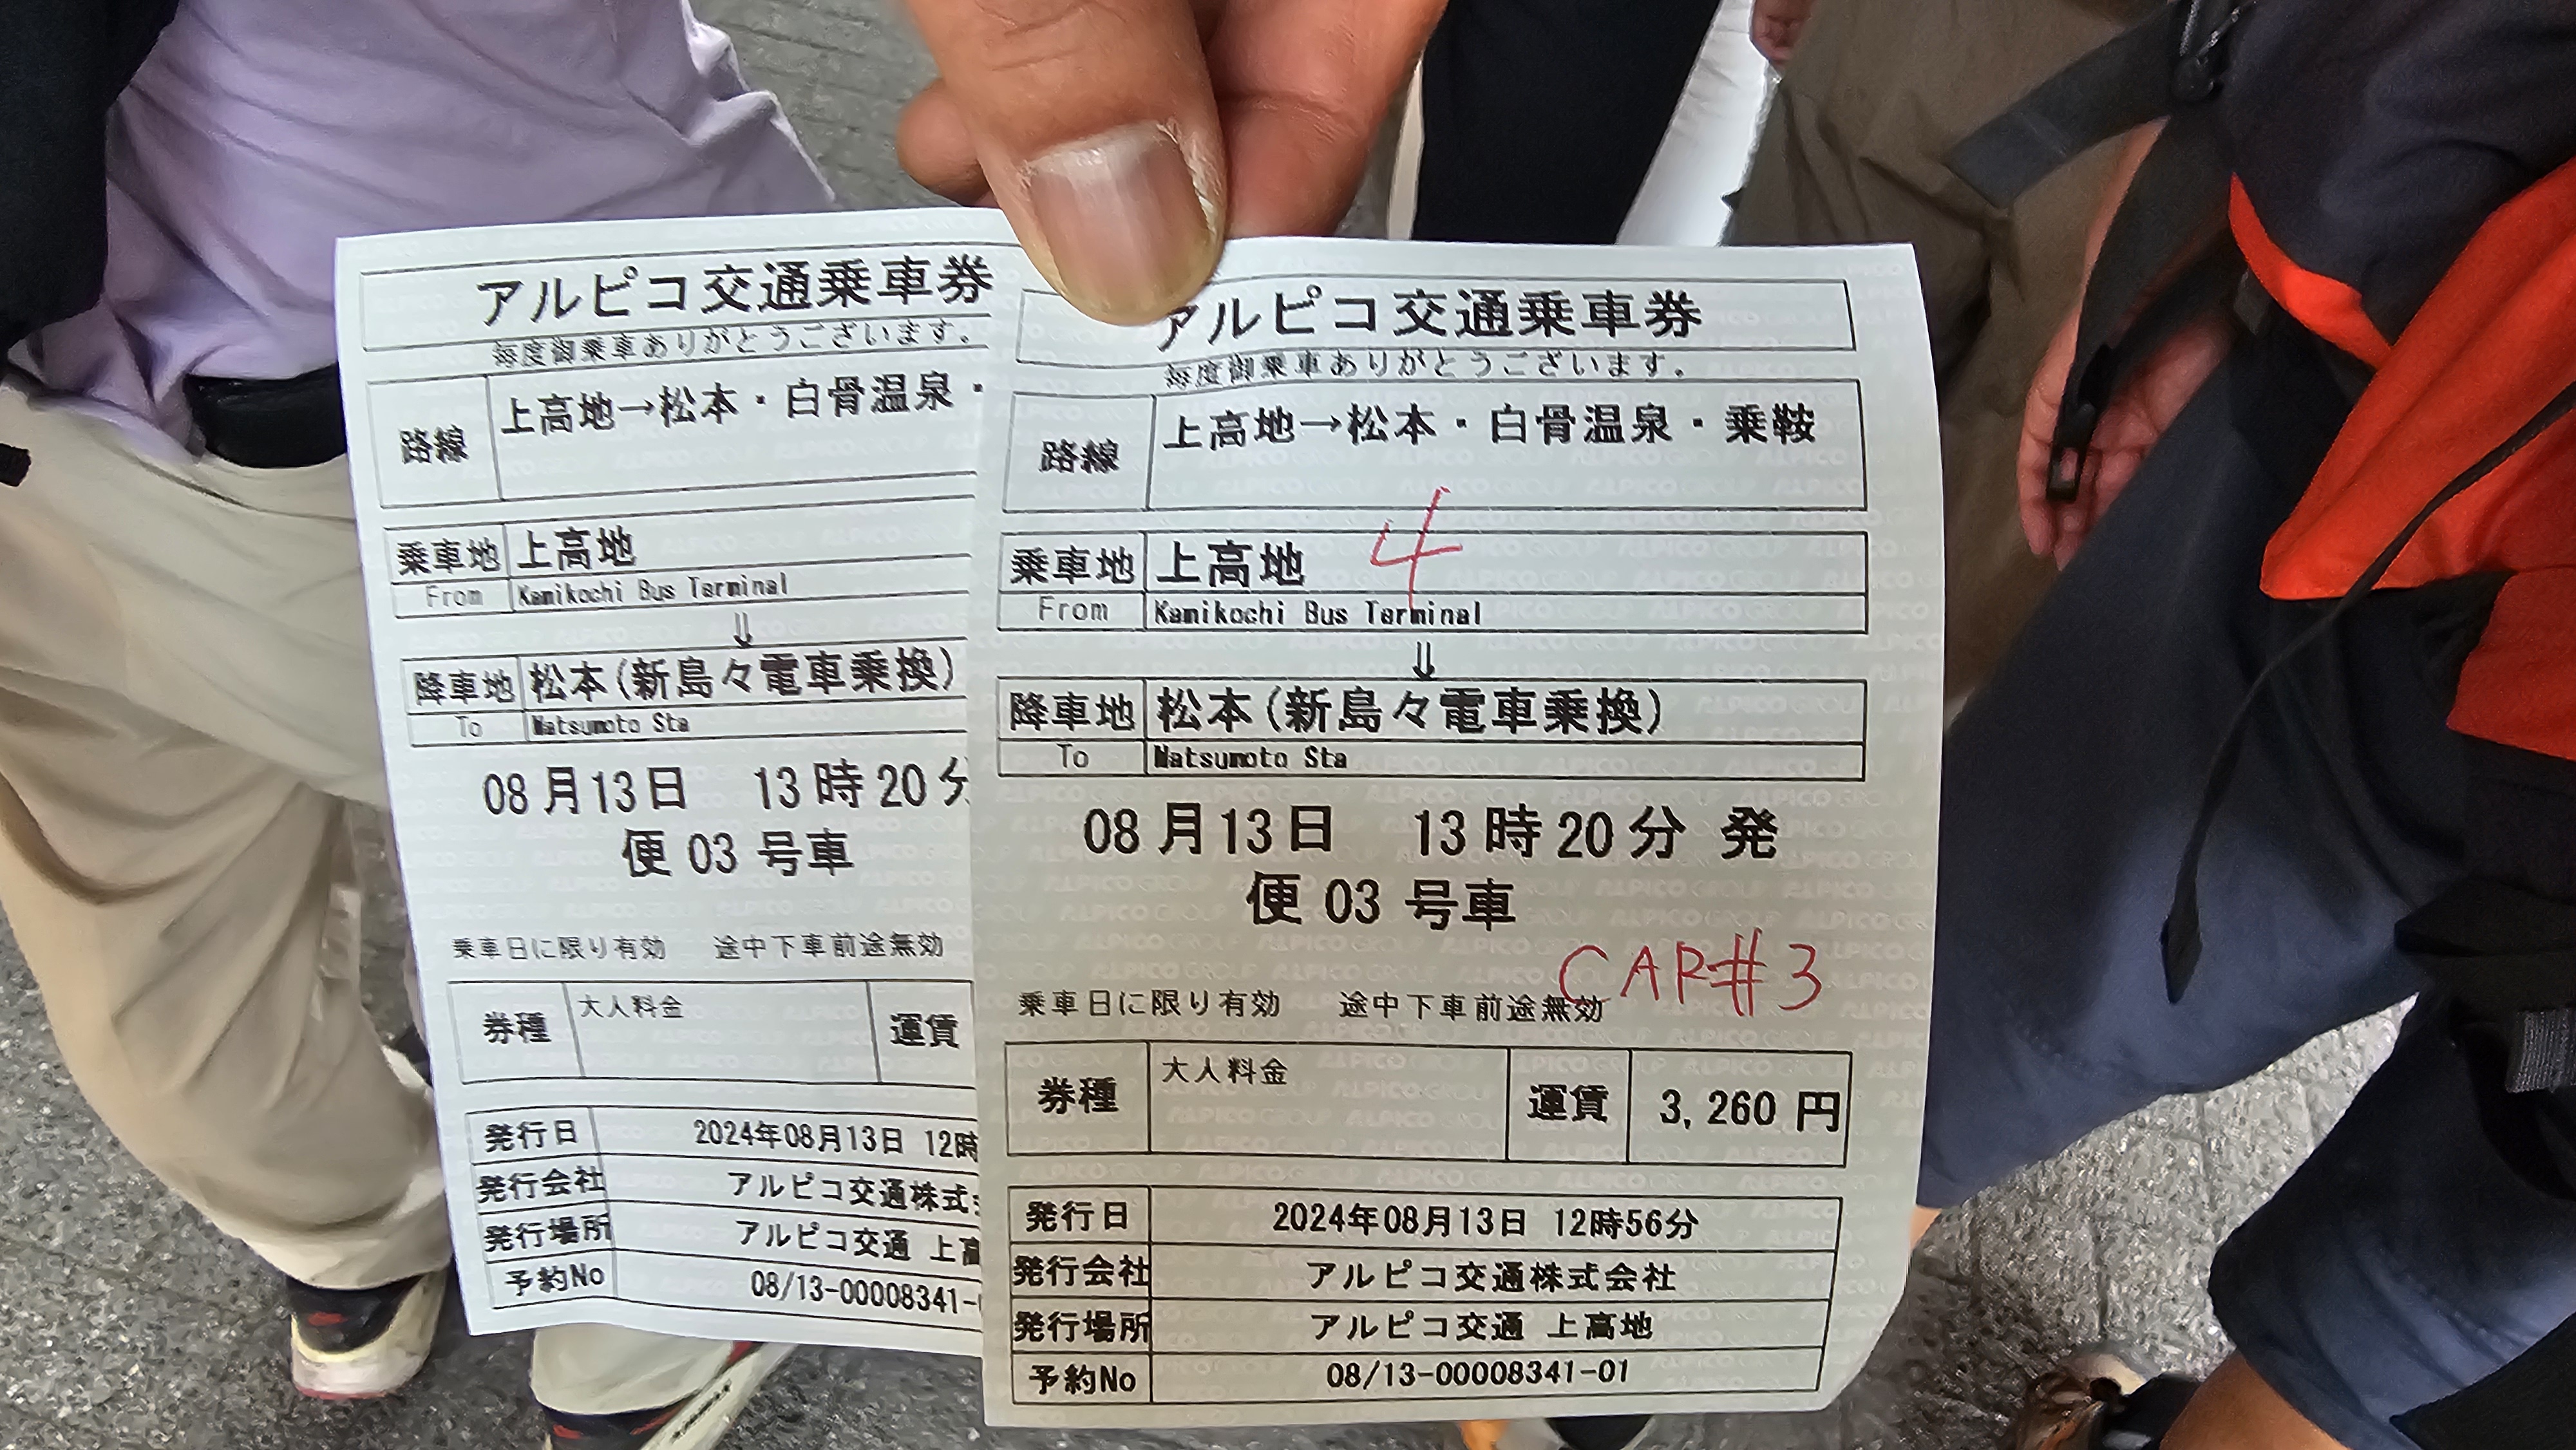 アルピコ交通乗車券
毎度御乗車ありがとうございます。
路線 上高地→松本・白骨温泉・
乗車地 上高地
From Kamikochi Bus Terminal
⇓
降車地 松本(新島々電車乗換)
To Matsumoto Sta
08月13日 13時20分
便 03 号車
乗車日に限り有効 途中下車前途無効
券種 大人料金 運賃
発行日 2024年08月13日 12時
発行会社 アルピコ交通株式
発行場所 アルピコ交通 上高
予約No 08/13-00008341-
アルピコ交通乗車券
毎度御乗車ありがとうございます。
路線 上高地→松本・白骨温泉・乗鞍
4
乗車地 上高地
From Kamikochi Bus Terminal
⇓
降車地 松本(新島々電車乗換)
To Matsumoto Sta
08月13日 13時20分 発
便 03 号車
CAR#3
乗車日に限り有効 途中下車前途無効
券種 大人料金 運賃 3,260 円
発行日 2024年08月13日 12時56分
発行会社 アルピコ交通株式会社
発行場所 アルピコ交通 上高地
予約No 08/13-00008341-01